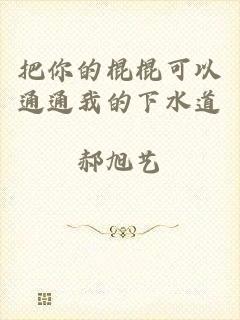 把你的棍棍可以
通通我的下水道
郝旭艺